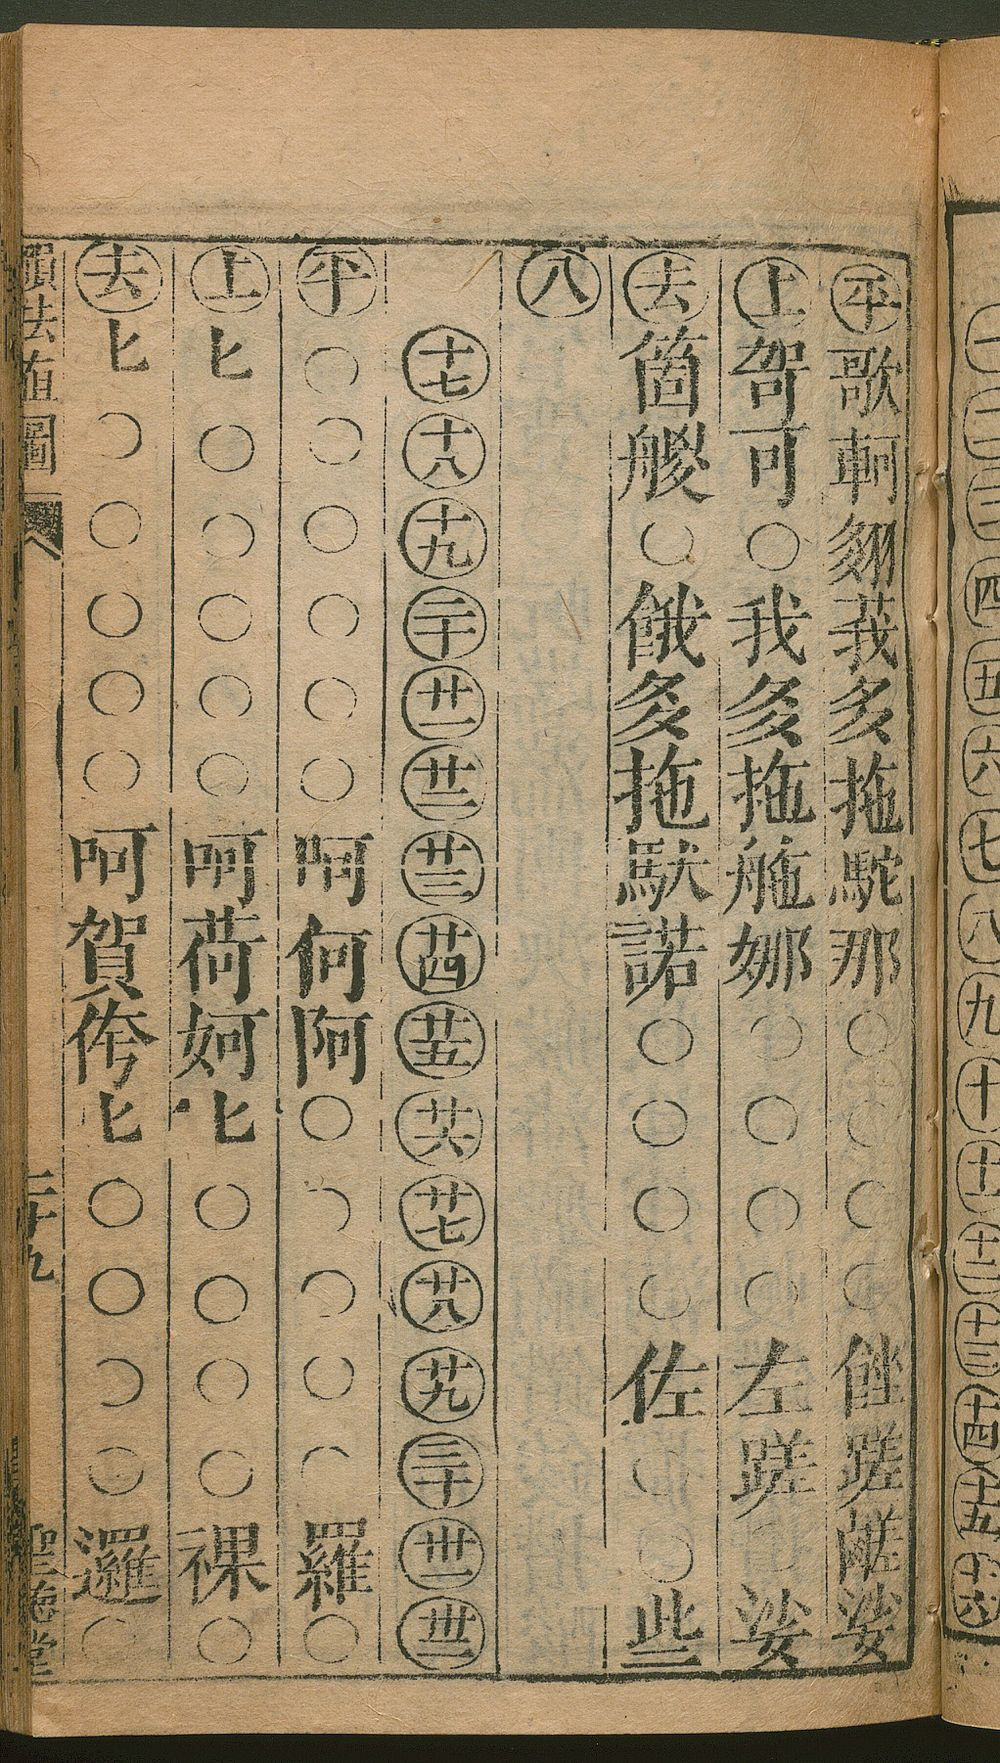 一二三四五六七八九十十一十二十三十四十五十六
平歌軻翗莪多拖駝那○○○○傞蹉醝娑
上哿可○我㚊拕舵娜○○○○左蹉○娑
去箇䑸○餓㚊拖馱諾○○○○佐○○些
入
十七十八十九二十廿一廿二廿三廿四廿五廿六廿七廿八廿九三十卅一卅二
平○○○○○○呵何阿○○○○○羅○
上匕○○○○○呵荷妸匕○○○○裸○
去匕○○○○○呵賀侉匕○○○○邏○
韻法直圖 二十九 聖德堂